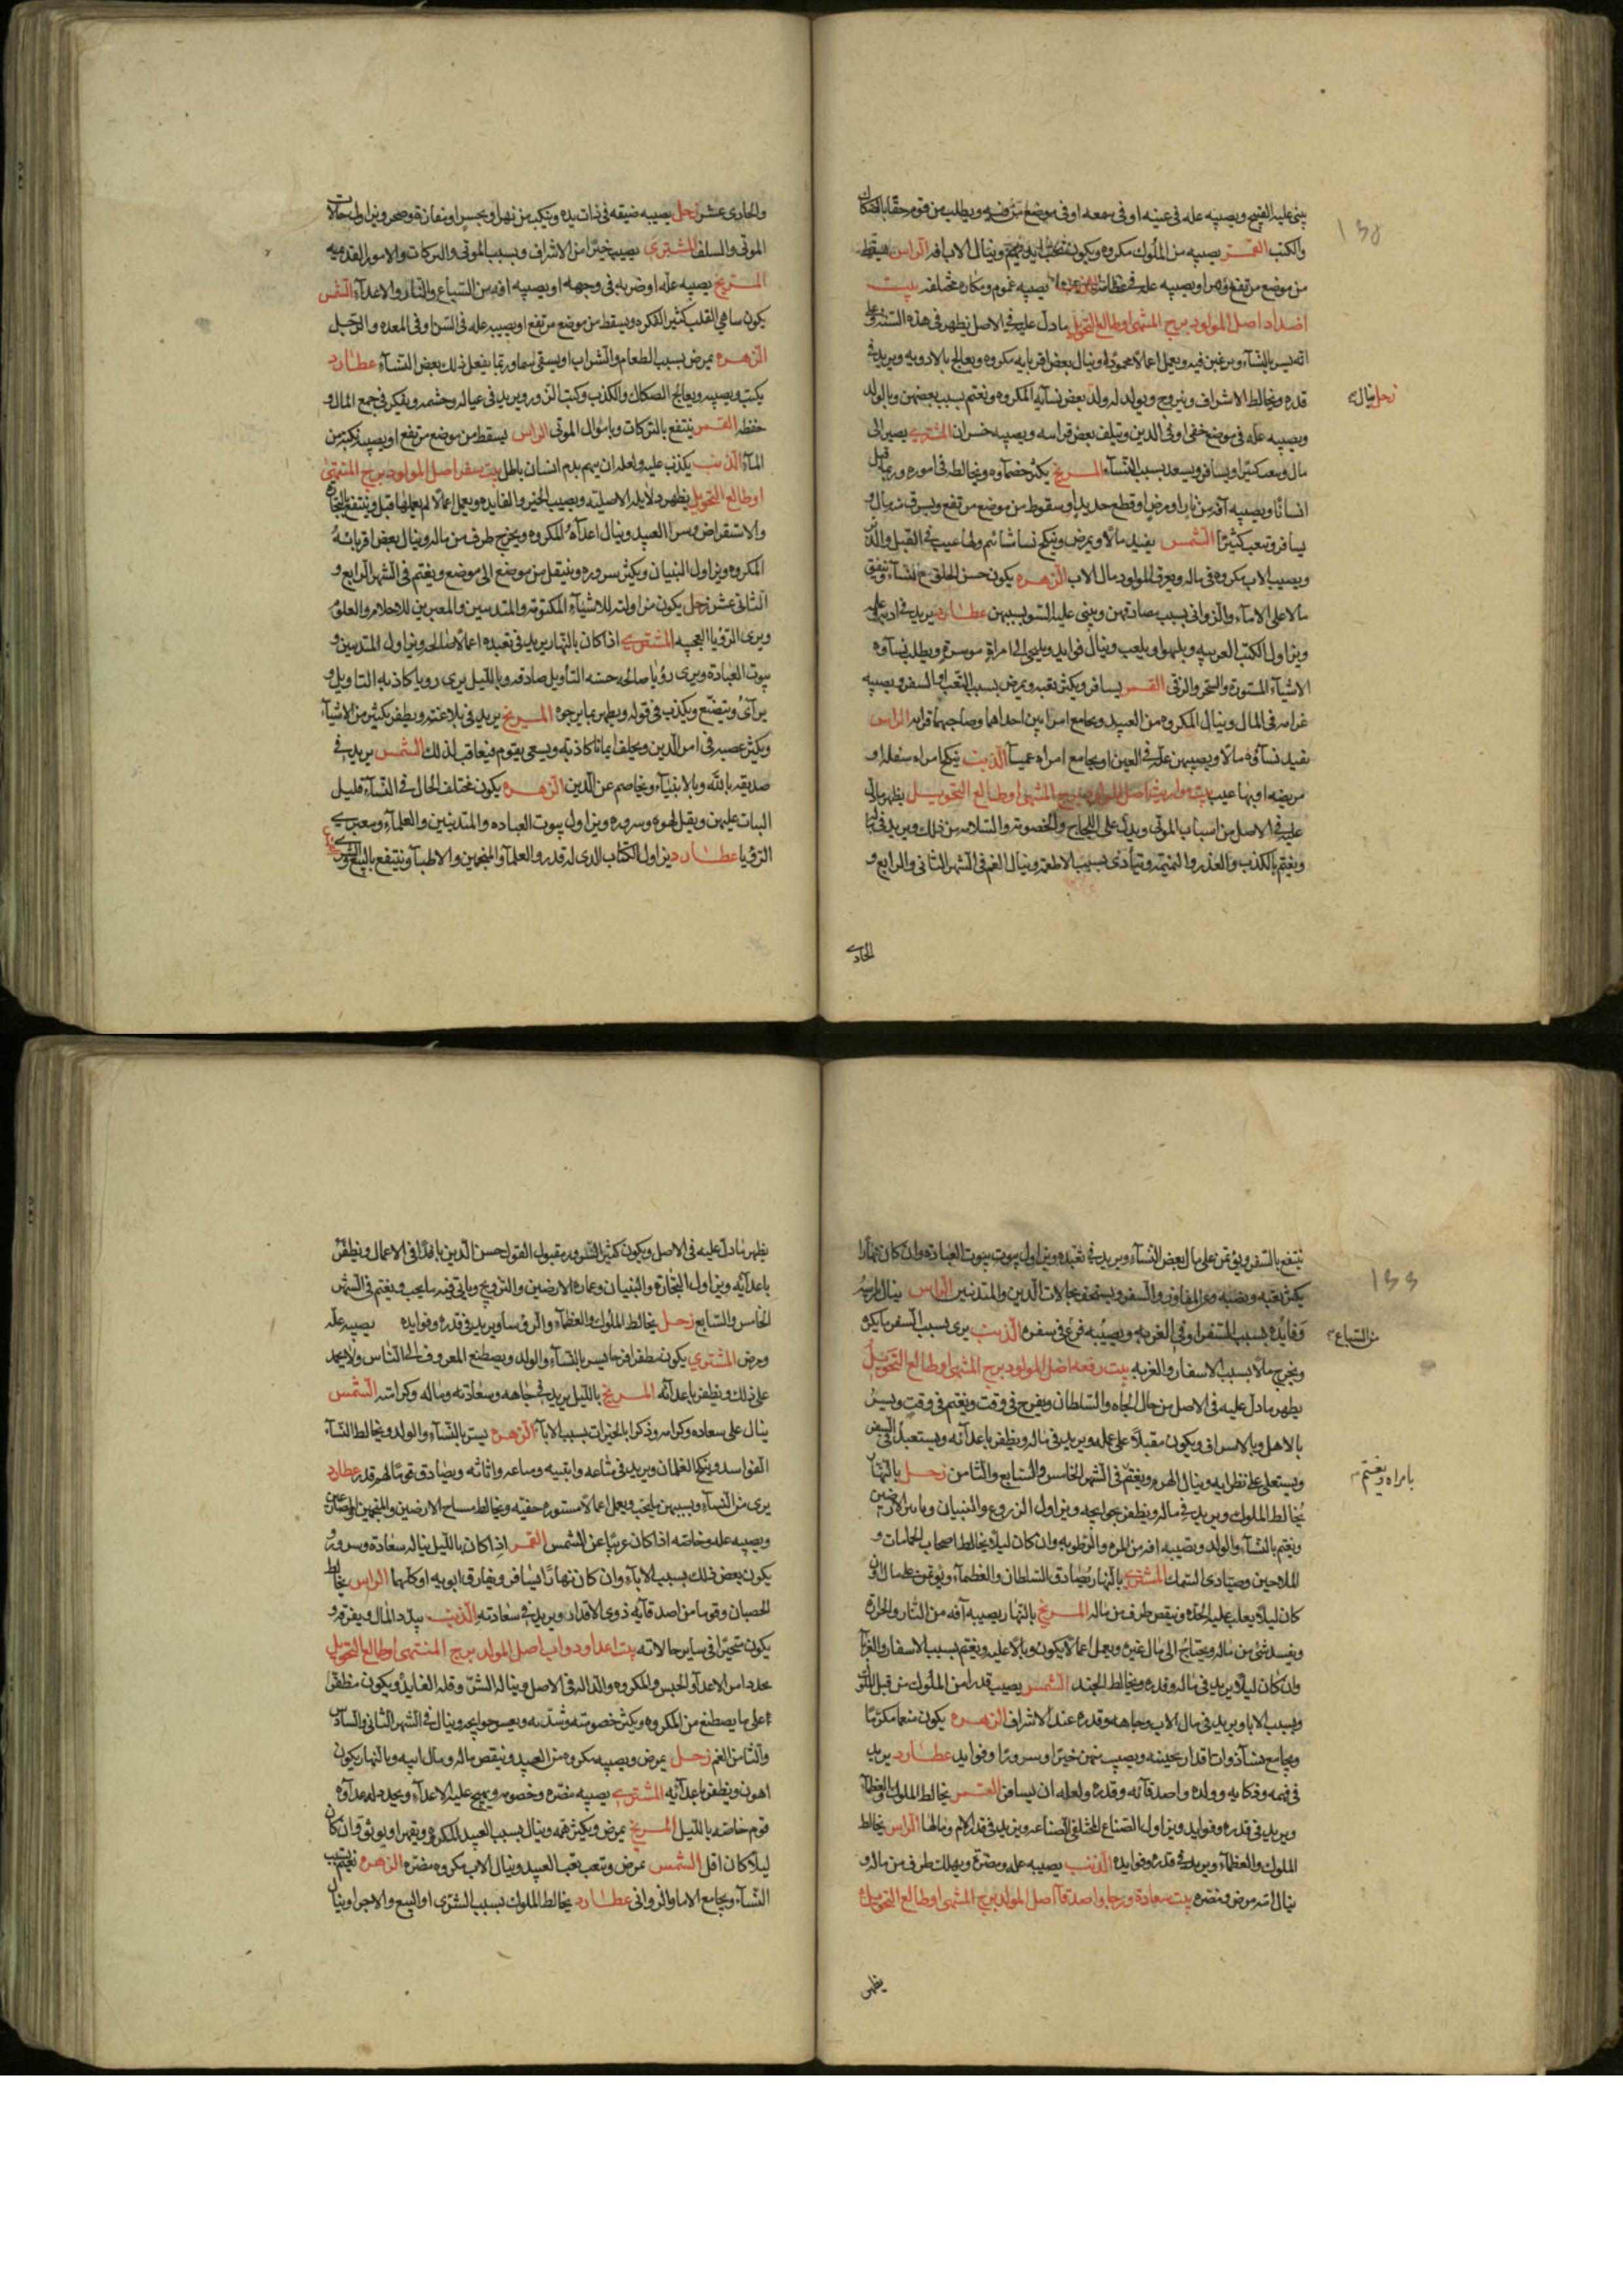 يبنى عليه القبيح ويصيبه عله فى عينيه او فى سمعه او فى موضع شريف ويطلب من قوم حقا بالصكاك
والكتب القمر يصيبه من الملوك مكروه ويكون وينال الاب افه الراس يسقط
من موضع مرتفع ويصيبه عله فى يصيبه غموم ومكاره مختلفه بيت
اضداد اصل المولود برج المنتهى او طالع التحويل ما دل عليه فى الاصل يظهر فى هذه السنه وعلى
انه يسر بالنسآء ويرغبن فيه ويعمل اعمالا محموده او ينال بعض اقربايه مكروه ويعالج بالادويه ويزيد فى
قدره ويخالط الاشراف ويتزوج ويولد له ولد بعض نسآيه المكروه ويغتم بسبب بعضهن وبالولد
زحل ينال
ويصيبه عله فى موضع خفى او فى الدين ويتلف بعض قراسه ويصيبه خسران المشترى يصير الى
مال وسعه كثيرا ويسافر ويسعد بسبب النسآء المريخ يكثر خصمآوه ويخالطه فى اموره وربما قتل
انسانا ويصيبه آفه من نار او مرض او قطع حديد او سقوط من موضع مرتفع ويسرق من مال و
يسافر ويتعب كثيرا الشمس يفيد مالا ويمرض وينكح نسا
ويصيب الاب مكروه فى ماله ويورق المولود مال الاب الزهره يكون حسن الخلق مع النسآء وينفق
مالا على الامآء والزوانى بسبب مصادقتهن ويبنى عليه السوء بسببهن عطارد يزيد فى ادبه وعلمه
ويزاول الكتب العربيه ويلهوا ويلعب وينال فوايد ويلجى الى امراة موسرة ويطلب نسآوه
الاشيآء المستورة والسحر والرقى القمر يسافر ويكثر تعبه ويمرض بسبب التعب او السفر ويصيبه
غرامه فى المال وينال المكروه من العبيد ويجامع امراتين احداهما وصاحبهما قرابه الراس
تفيد نسآؤه مالا ويصيبهن عله فى العين او يجامع امراه عميآ الذنب ينكح امراه سفله او
مريضه او بها عيب بيت مواريث اصل المولد برج المنتهى او طالع التحويل يظهر ما دل
عليه فى الاصل من اسباب الموتى ويدل على اللجاج والخصومة والسلامه من ذلك ويزيد فى
ويغتم بالكذب والغدر والنميمه ويتأذى بسبب الاطعمه وينال الغم فى الشهر الثانى والرابع و
الحادى
والحادى عشر زحل يصيبه ضيقه فى ذات يده وينكب من نهر او بحبس او مفازة وصحر ويزاول حالات
الموتى والسلف المشترى يصيب خيرا من الاشراف وبسبب الموتى والتركات والامور القديمه
المريخ يصيبه عله او ضربه فى وجهه او يصيبه افه من السباع والنار والاعدآء الشمس
يكون ساهى القلب كثير الفكره ويسقط من موضع مرتفع او يصيبه عله فى السن او فى المعده والرجل
الزهره يمرض بسبب الطعام والشراب او يسقى سما وربما يفعل ذلك بعض النسآء عطارد
يكتب ويصيبه ويعالج الصكاك والكذب وكتب الزور ويزيد فى عياله وحشمه ويفكر فى جمع المال و
حفظه القمر ينتفع بالتركات وباموال الموتى الراس يسقط من موضع مرتفع او يصيبه نكبه من
المآء الذنب يكذب عليه ولعله ان يتهم بدم انسان باطل بيت سفر اصل المولود برج المنتهى
او طالع التحويل يظهر دلايله الاصليه ويصيب الخير والفايده ويعمل اعمالا لم يعملها قبل وينتفع بالتجاره
والاستقراض وسرا العبيد وينال اعدآءه المكروه ويخرج طرف من ماله وينال بعض اقربائه
المكروه ويزاول البنيان ويكثر سروره وينتقل من موضع الى موضع ويغتم فى الشهر الرابع و
الثانى عشر زحل يكون مزاولته للاشيآء المكتومة والمتدينين والمعبرين للاحلام والعلوم
ويرى الرؤيا العجيبه المشترى اذا كان بالنهار يزيد فى تعبده اعمالا صالحه ويزاول المتدينين و
بيوت العبادة ويرى رؤيا صالحه حسنه التأويل صادقه وبالليل يرى رويا كاذبه التاويل و
يرآى ويتصنع ويكذب فى قوله ويطهر بما يرجوه المريخ يزيد فى بلا عنته ويظفر بكثير من الاشيآء
ويكثر عصيه فى امر الدين ويحلف ايمانا كاذبه ويسعى بقوم فيعاقب لذلك الشمس يزيد فى
صديقه بالله وبالانبيآء ويخاصم عن الدين الزهره يكون مختلف الحال فى النسآء قليل
البيات عليهن ويقل لهوه وسروره ويزاول بيوت العباده والمتدينين والعلمآء ومعبرى
الرؤيا عطارد يزاول الكتاب الذى له قدر والعلمآ والمنجمين والاطبآ وينتفع بالبيع والشرى
ينتفع بالسفر ويؤتمن على مال بعض النسآء ويزيد فى تعبده ويزاول بيوت العبادة وان كان نهارا
يكثر تعبه ونصبه وعز المفاوز والسفر ويستخف بحالات الدين والمتدينين الراس ينال
وفايده بسبب السفر او فى الغربه ويصيبه فزع فى سفره الذنب يرى بسبب السفر ما يكره
من السباع
ويخرج مالا بسبب الاسفار والغربه بيت رفعه اصل المولود برج المنتهى او طالع التحويل
يظهر ما دل عليه فى الاصل من حال الجاه والسلطان ويفرح فى وقت ويغتم فى وقت ويسر
بالاهل وبالاسراف ويكون مقبلا على عمله ويزيد فى ماله ويظفر باعدآئه ويستعبد
ويستعلى على نظرايه وينال الهرم ويغتم فى الشهر الخامس والسابع والثامن زحل بالنهار
بامراه ويغتم
يخالط الملوك ويزيد فى ماله ويظفر بحوايجه ويزاول الزروع والبنيان
ويغتم بالنسآء والولد ويصيبه افه من البرد والرطوبه وان كان ليلا يخالط اصحاب الحمامات و
الملاحين وصيادى السمك المشترى بالنهار يصادق السلطان والعظمآء ويؤتمن على مال وان
كان ليلا يغلب عليه الحده وينقص طرف من ماله المريخ بالنهار يصيبه آفه من النار والحراره
ويفسد شئ من ماله ويحتاج الى مال غيره ويعمل اعمالا يكون وبالا عليه ويغتم بسبب الاسفار والغربه
وان كان ليلا يزيد فى ماله وقدره ويخالط الجند الشمس يصيب قدرا من الملوك من قبل
وبسبب الابا ويزيد فى مال الاب وجاهه وقدره عند الاشراف الزهره يكون منعما مكرما
ويجامع نسآء ذوات اقدار ويصيب منهن خيرا وسرورا وفوايد عطارد يزيد
فى فهمه وذكايه وولده واصدقآئه وقدره ولعله ان يسافر القمر يخالط الملوك والعظمآء
ويزيد فى قدره وفوايد ويزاول الصناع المختلفى الصناعه ويزيد فى قدر الام ومالها الراس يخالط
الملوك والعظمآء ويزيد فى قدره وفوايده الذنب يصيبه عله ومضرة ويهلك طرف من ماله و
ينال امه مرض ومضره بيت سعادة ورجا واصدقآ اصل المولد برج المنتهى او طالع التحويل
يظهر
يظهر ما دل عليه فى الاصل ويكون كثير السرور مقبول القول حسن الدين نافذا فى الاعمال ويظفر
باعدآئه ويزاول التجارة والبنيان وعمارة الارضين والتزويج وياتى فيه ما يحب ويغتم فى الشهر
الخامس والسابع زحل يخالط الملوك والعظمآء والروسآ ويزيد فى قدره وفوايده يصيبه عله
ومرض المشترى يكون مظفرا فرحا يسر بالنسآء والولد ويصطنع المعروف الى الناس ولا يحمد
على ذلك ويظفر باعدآئه المريخ بالليل يزيد فى جاهه وسعادته وماله وكرامته الشمس
ينال على سعاده وكرامه وذكرا بالخيرات بسبب الابآء الزهره يسر بالنسآء والولد ويخالط النسآء
الفواسد وينكح الغلمان ويزيد فى متاعه وابنيه وأثاثه ويصادق قوما لهم قدر عطارد
يرى من النسآء وبسببهن ما يحب ويعمل اعمالا مستورة خفيه ويخالط مساح الارضين والمنجمين
ويصيبه عله وخاصه اذا كان غربيا عن الشمس القمر اذا كان بالليل يناله سعادة وسرور
يكون بعض ذلك بسبب الابآء وان كان نهارا يسافر ويفارق ابويه او كلهما الراس يخالط
الخصيان وقوما من اصدقآيه ذوى الاقدار ويزيد فى سعادته الذنب يبدد المال ويفرقه و
يكون متحيرا فى ساير حالاته بيت اعدا ودواب اصل المولد برج المنتهى او طالع التحويل
يحدد امر الاعدآ والحبس والمكروه والذاله فى الاصل ويناله الشر وقله الفايدة ويكون مظفرا
على ما يصطنع من المكروه ويكثر خصومته وشدته ويعسر حوايجه وينال فى الشهر الثانى والسادس
والثامن الغم زحل يمرض ويصيبه مكروه من العبيد وينقص ماله ومال ابيه وبالنهار يكون
اهون ويظفر باعدآئه المشترى يصيبه مضره وخصومه ويهيج عليه الاعدآء ويحدد له عدآوة
قوم خاصه بالليل المريخ يمرض ويكثر همه وينال بسبب العبيد المكروه ويقهر او يوثق وان كان
ليلا كان اقل الشمس يمرض ويتعب تعب العبيد وينال الاب مكروه مضره الزهره يغتم بسبب
النسآء ويجامع الاما والزوانى عطارد يخالط الملوك بسبب الشرى او البيع والاجر او ينال